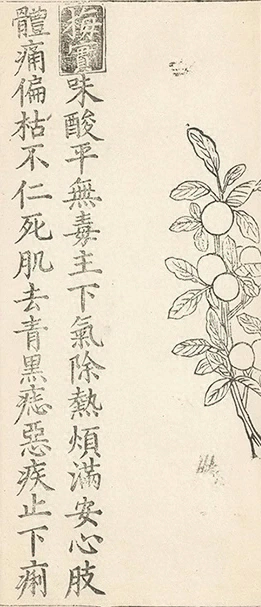 梅實味酸平無毒主下氣除熱煩滿安心肢
體痛偏枯不仁死肌去青黑痣惡疾止下痢